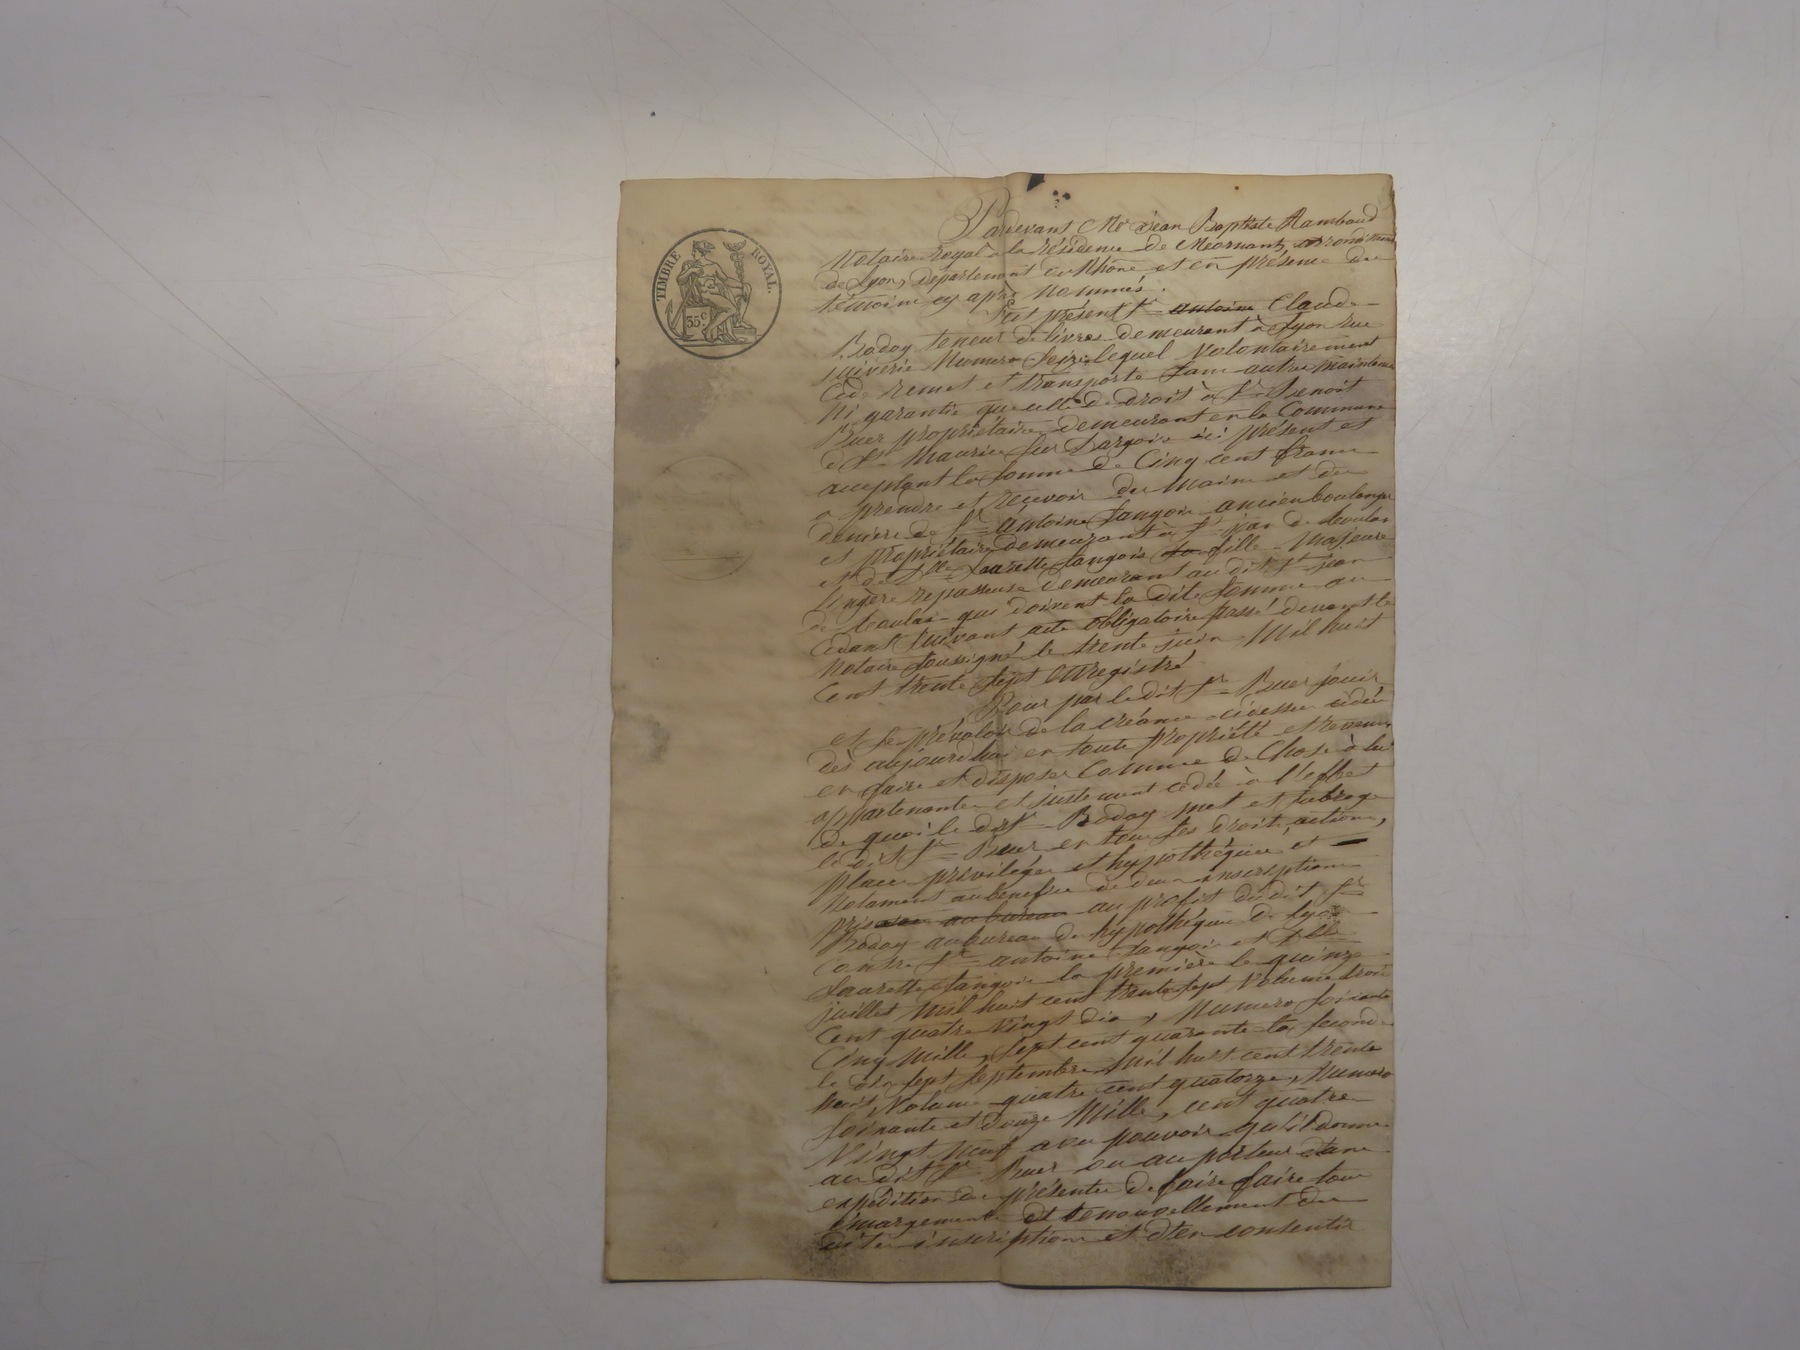 TIMBRE ROYAL.
35 c.
Pardevant Me Jean Baptiste Rambaud
Notaire royal à la résidence de Mornant, arrondissement
de Lyon, département du Rhône et en présence des
témoins cy après nommés.
Fut présent Sr antoine Claude
Bodoy teneur de livres demeurant à Lyon rue
juiverie Numero seize lequel volontairement
Cède remet et transporte sans autre maintenue
Ni garantie que celle de droit à Sr Benoit
Buer propriétaire demeurant en la Commune
de St Maurice sur Dargoire ici présent et
acceptant la somme de Cinq cent francs
a prendre et reçevoir des mains et des
deniers de Sr antoine Langois ancien boulanger
et propriétaire demeurant à St jean de toulas
et de Dlle Laurette Langois sa fille Majeure
Lingère repasseuse demeurant au dit St jean
de toulas qui doivent la dite somme au
Cédant suivant acte obligatoire passé devant le
Notaire soussigné le trente juin Mil huit
Cent trente sept enregistré
Pour par le dit Sr Buer jouir
et se prévaloir de la créance cidessus cédée
dès aujourdhui en toute propriété et revenus
en faire et disposer Comme de Chose à lui
appartenante et justement cédée à l'effet
de quoi le dit Sr Bodoy met et subroge
le dit Sr Buer en tous ses droits, actions,
place privilèges et hypothèques, et
Notament au bénéfice de deux inscriptions
prises au bureau au profit du dit Sr
Bodoy au bureau des hypothèques de Lyon
Contre Sr antoine Langois et Dlle
Laurette Langois la première le quinze
juillet Mil huit cent trente sept Volume trois
Cent quatre vingt dix, Numero soixante
Cinq Mille, sept cent quarante la seconde
le dix sept septembre Mil huit cent trente
huit Volume quatre cent quatorze, Numero
soixante et douze Mille, cent quatre
Vingt neuf avec pouvoir qu'il donne
au dit Sr Buer ou au porteur d'une
expédition des présentes de faire faire tous
émargements et renouvellement des
dites inscriptions et d'en consentir